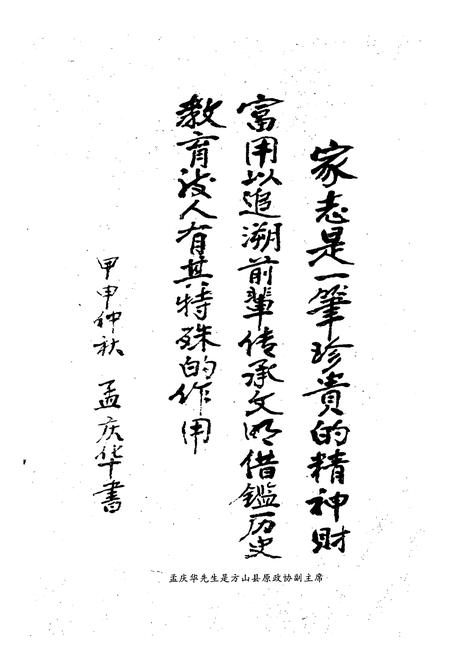 家志是一筆珍貴的精神財
富用以追溯前輩传承文明借鑑历史
教育後人有其特殊的作用
甲申仲秋 孟庆华書
孟庆华先生是方山县原政协副主席